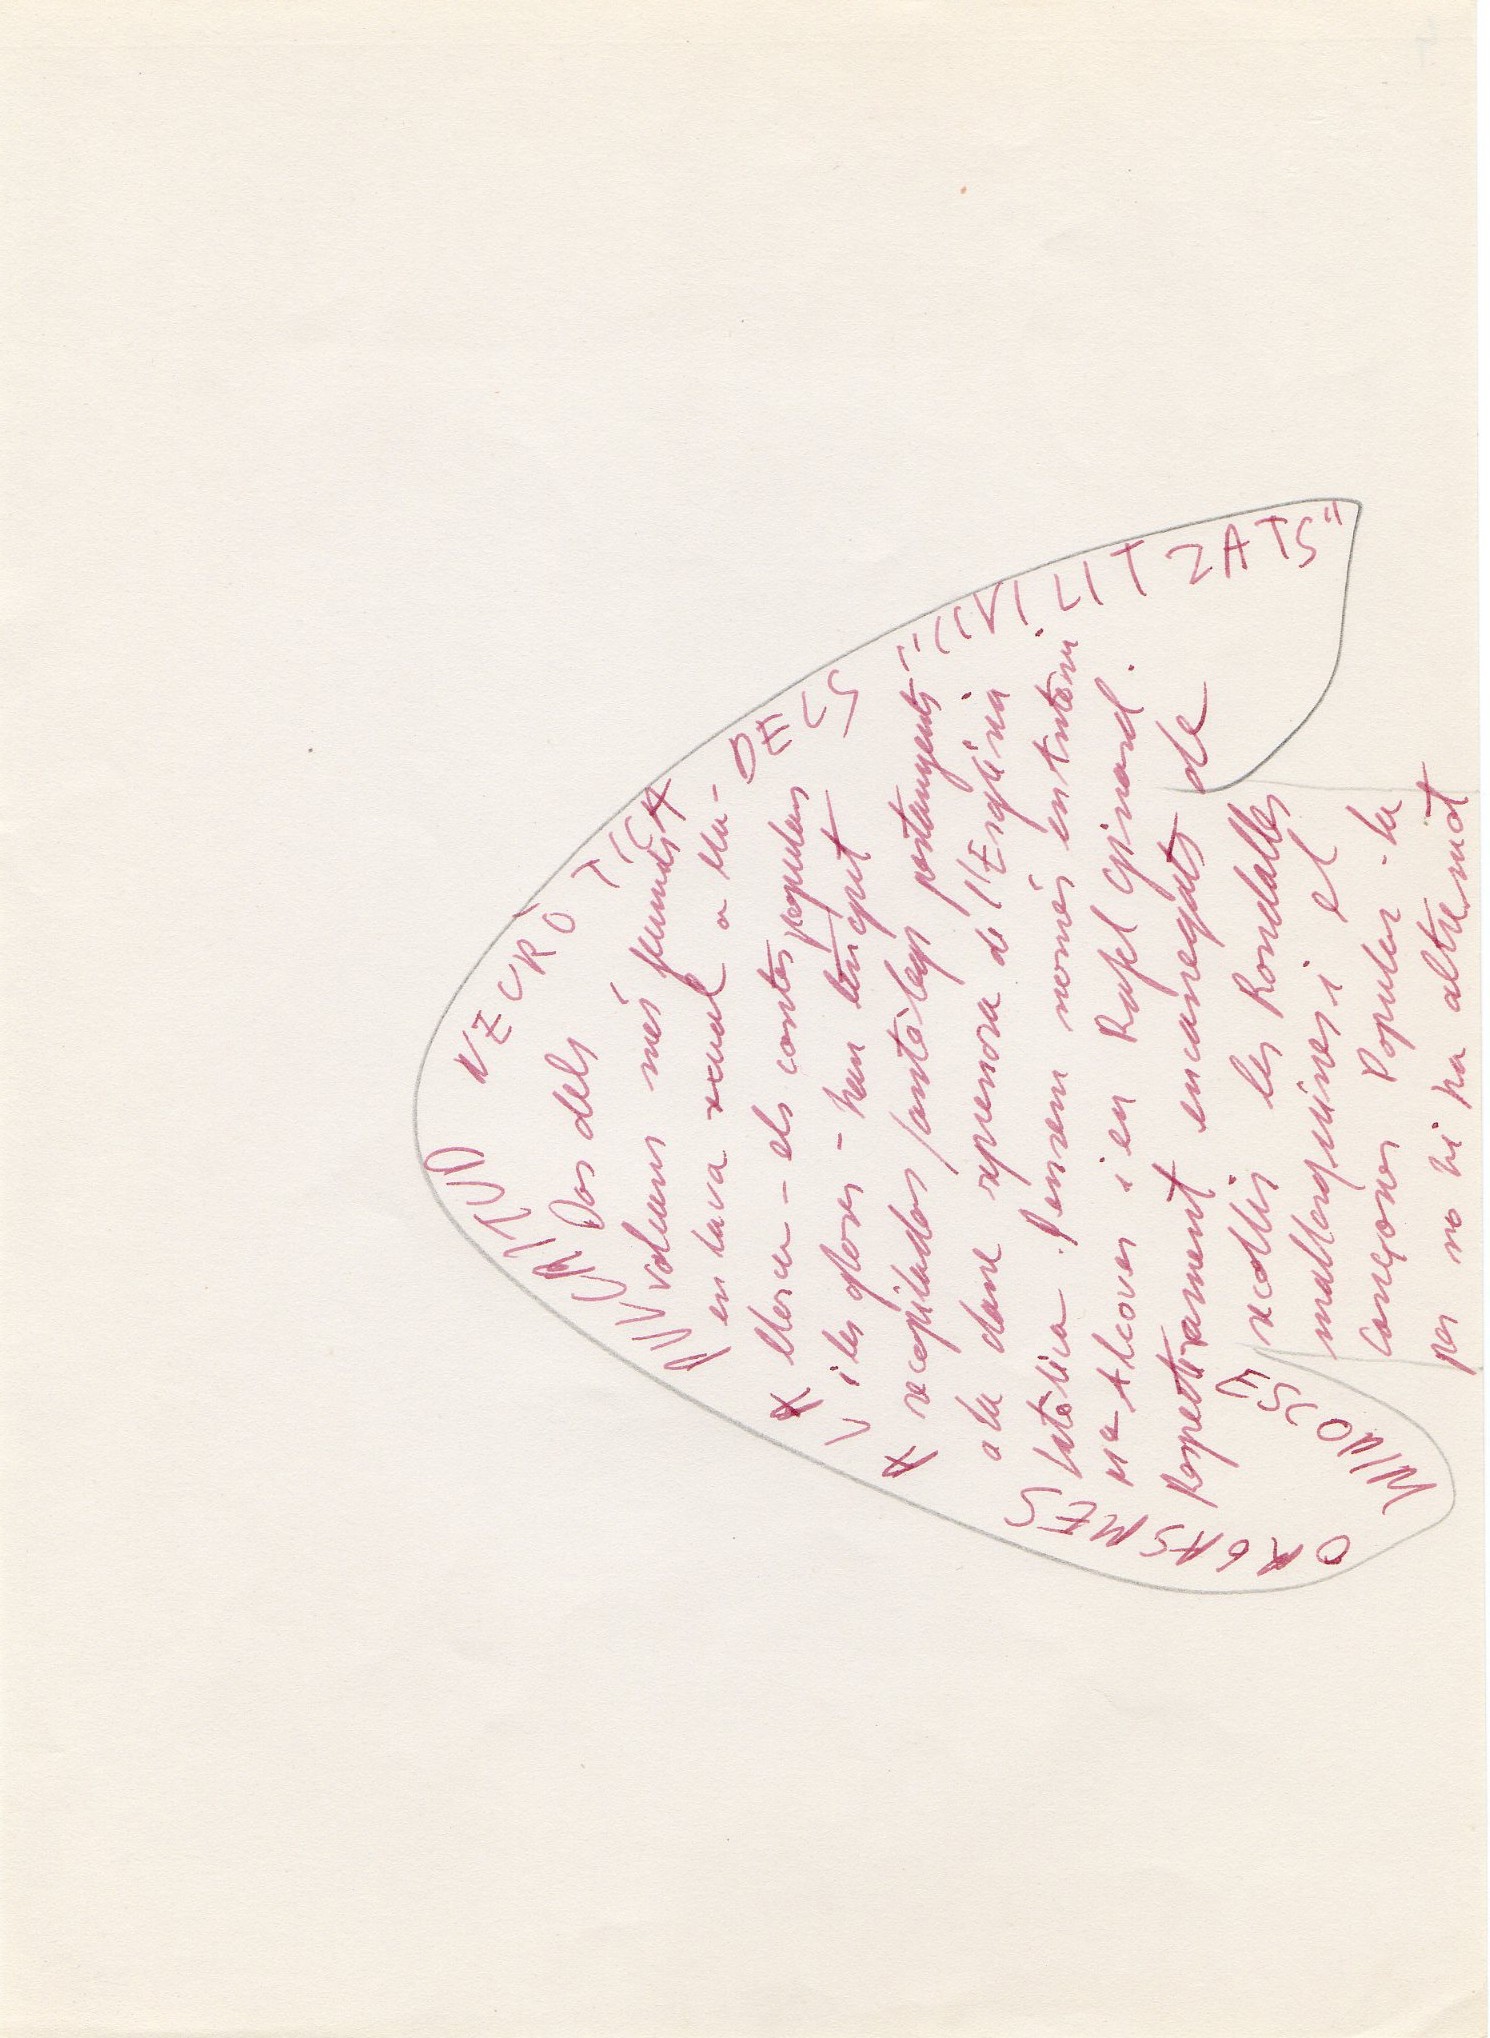 MINÚSC
ORGASMES
A V A
NUVCAITUD
NECRÒTICA
DELS
"CIVILITZATS"
Dos dels
volums més fecunds
en tava sexual a Ma-
llorca - els contes populars
i les gloses - han tingut
recopiladors fantòlegs pertanyents
a la clane repressora de l'Església
Catòlica. Pensem només en n'Antoni
Mª Alcover i en Rafel Ginard.
respectivament encarregats de
recollir les Rondalles
mallorquines i el
Cançoner Popular - la
per no hi ha altre mot